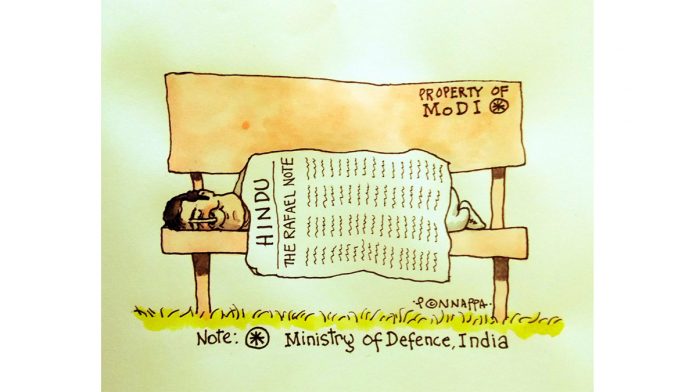 PROPERTY OF
MoDI ⊛
HINDU
THE RAFAEL NOTE
PONNAPPA
Note: ⊛ Ministry of Defence, India